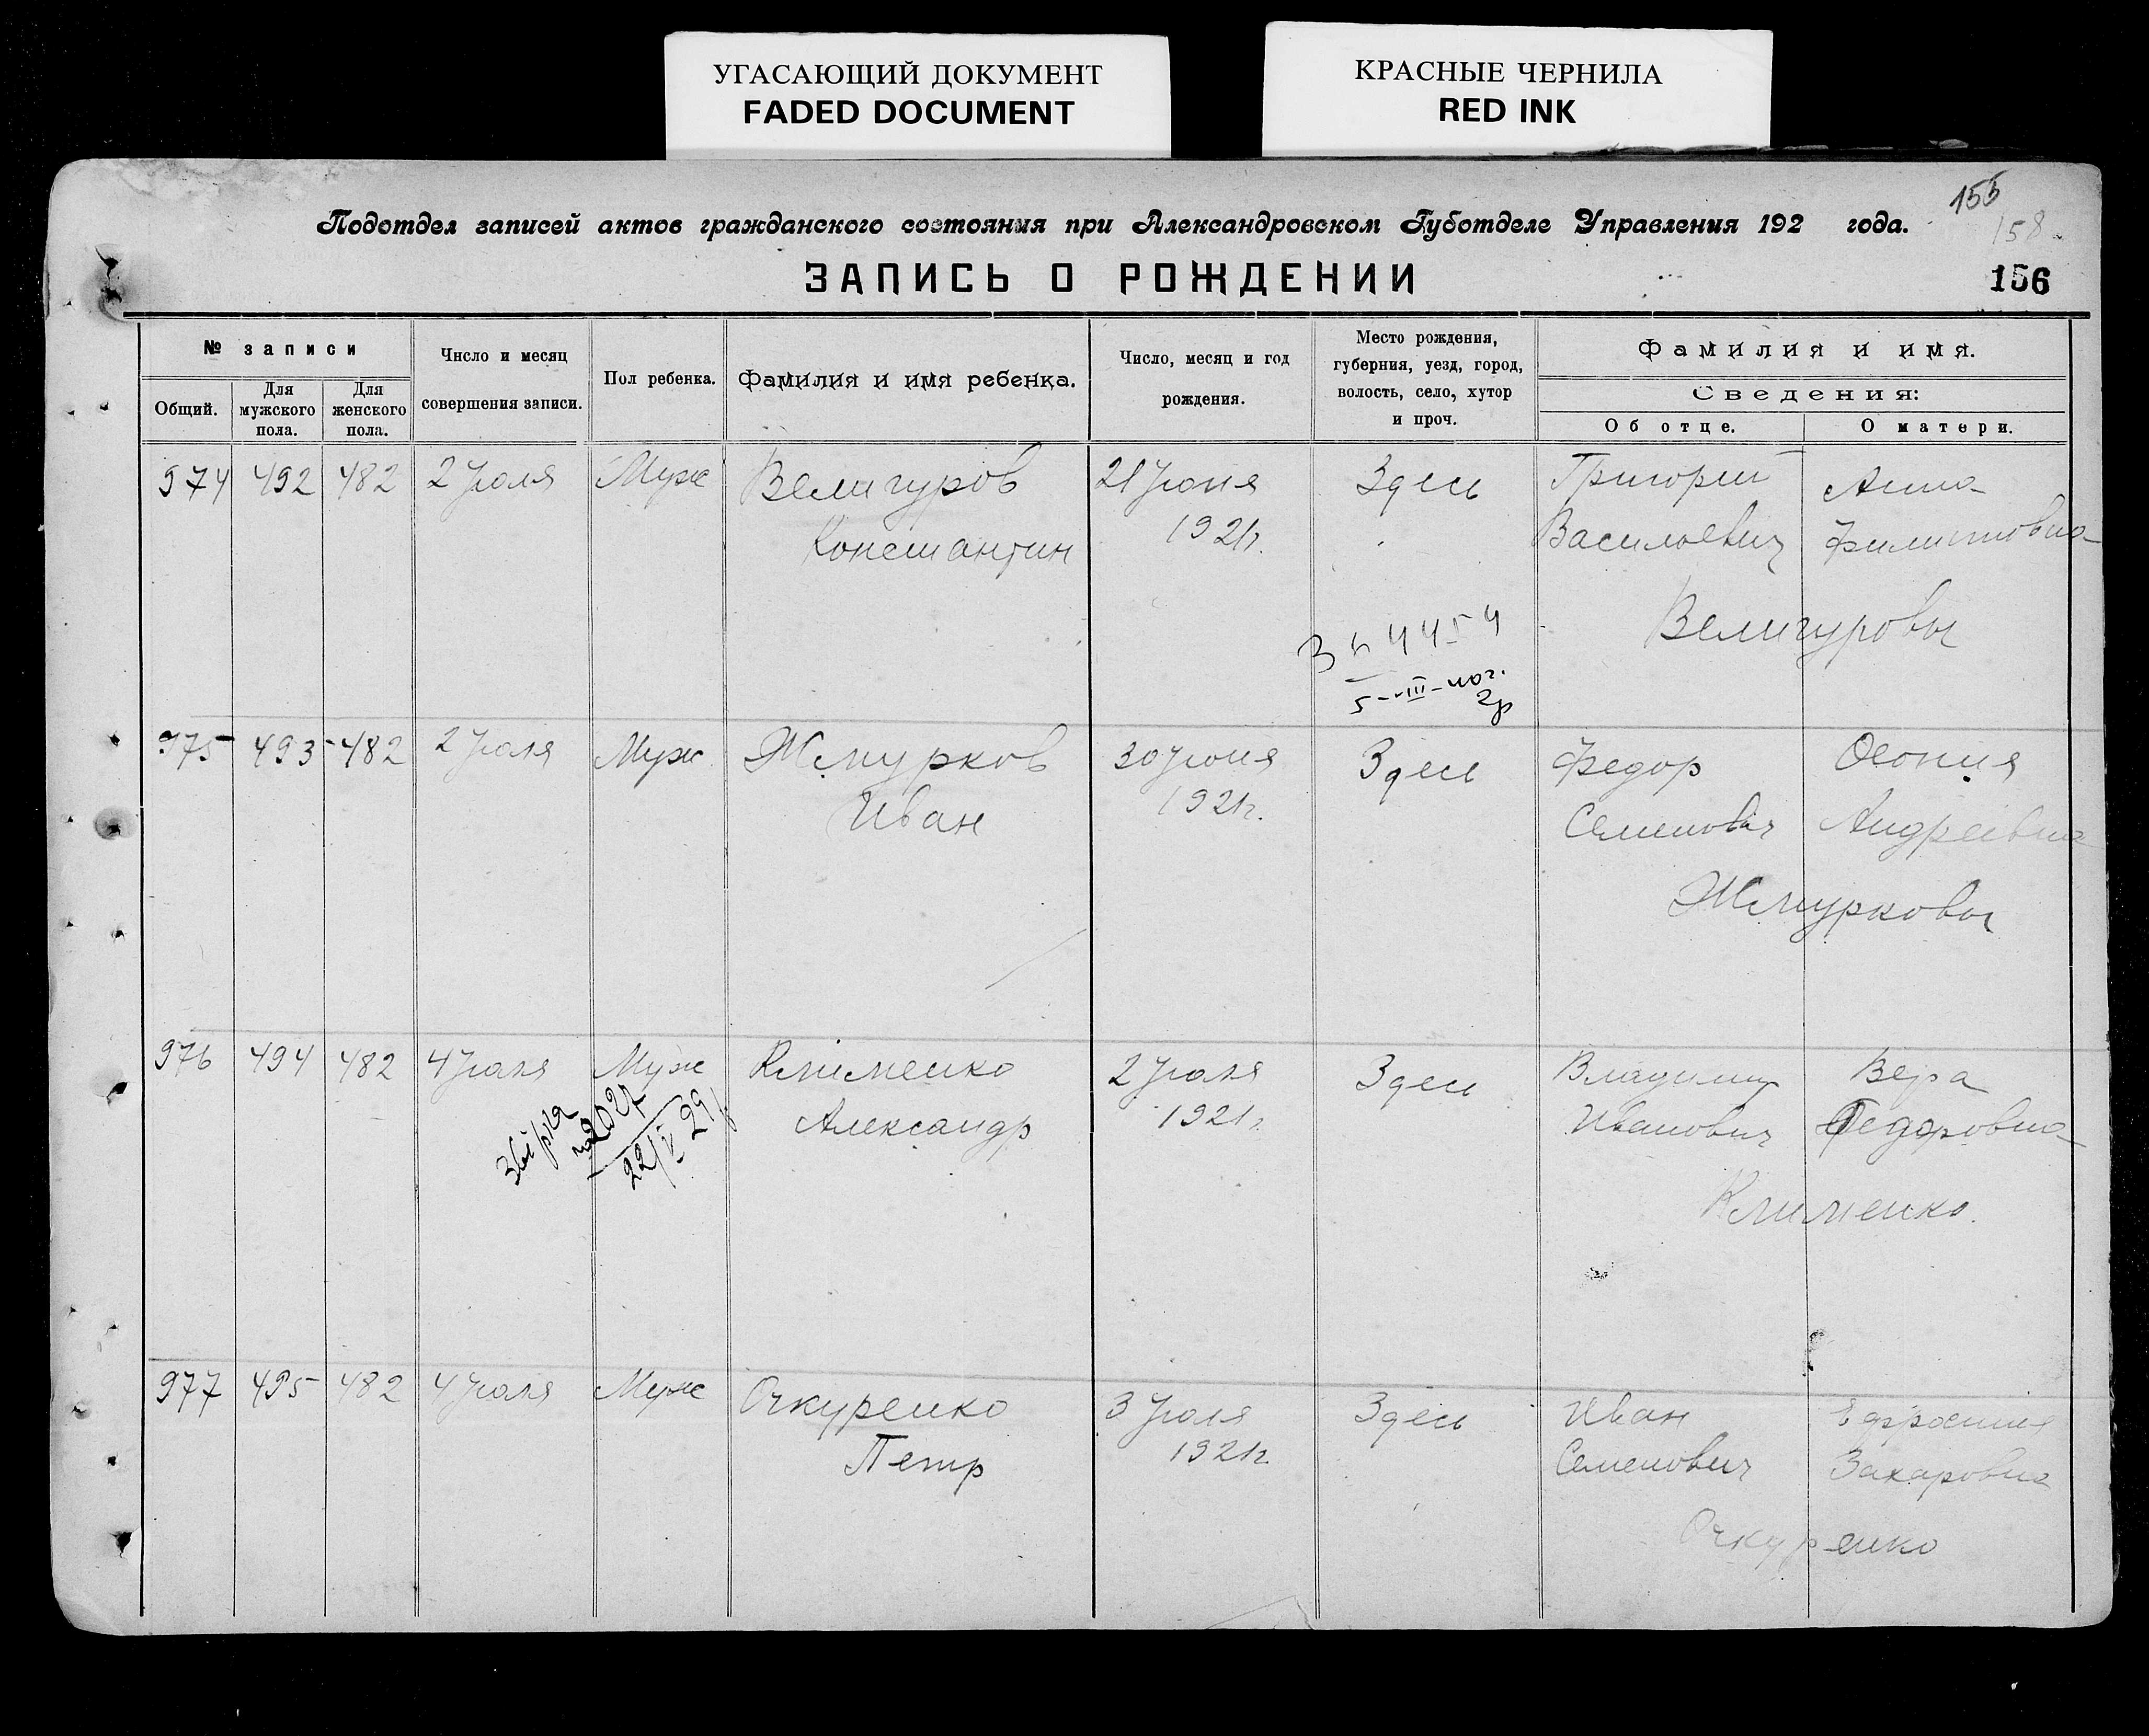 УГАСАЮЩИЙ ДОКУМЕНТ
FADED DOCUMENT
КРАСНЫЕ ЧЕРНИЛА
RED INK
155
158
Подотдел записей актов гражданского состояния при Александровском Губотделе Управления 192 года.
ЗАПИСЬ О РОЖДЕНИИ
156
№ записи
Общий.
Для мужского пола.
Для женского пола.
Число и месяц совершения записи.
Пол ребенка.
Фамилия и имя ребенка.
Число, месяц и год рождения.
Место рождения, губерния, уезд, город, волость, село, хутор и проч.
Фамилия и имя.
Сведения:
Об отце.
О матери.
974 492 482 2 Июля Муж Велигуров 21 Июня Здесь Григорий Анна
Константин 1921г. Васильевич Филипповна
Велигуровы
975 493 482 2 Июля Муж Жмурков 30 Июня Здесь Федор
Иван 1921г. Семенович Андреевна
Жмурковы
976 494 482 4 Июля Муж Клименко 2 Июля Здесь Владимир Вера
Александр 1921г. Иванович Федоровна
Клименко
977 495 482 4 Июля Муж Очкуренко 3 Июля Здесь Иван
Петр 1921г. Семенович Захаровна
Очкуренко